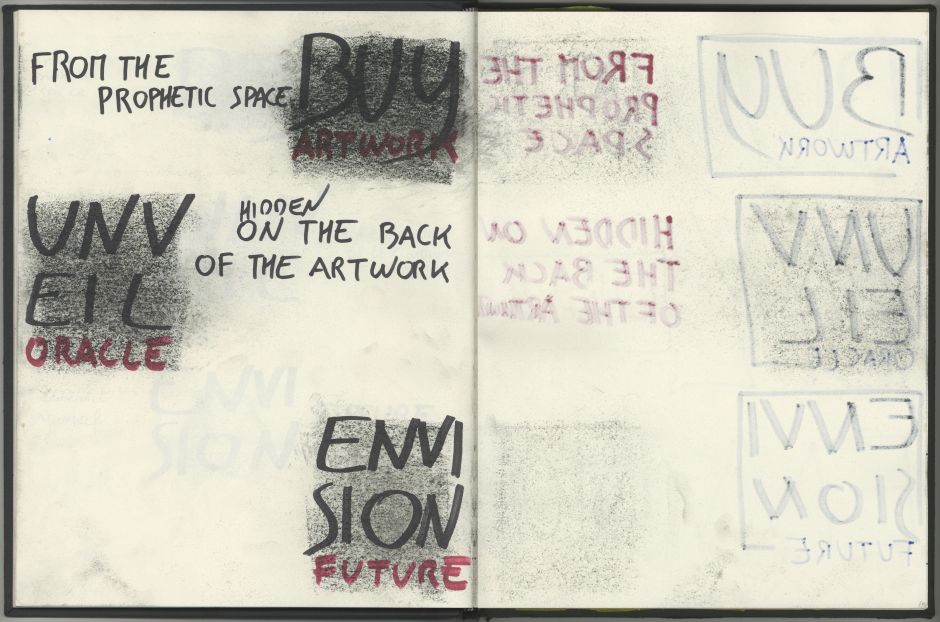 FROM THE
PROPHETIC SPACE
BUY
ARTWORK
UNV
EIL
ORACLE
HIDDEN
ON THE BACK
OF THE ARTWORK
ENVI
SION
FUTURE
FROM THE
PROPHETIC
SPACE
BUY
ARTWORK
HIDDEN ON
THE BACK
OF THE
UNV
EIL
ORACLE
ENVI
SION
FUTURE
ENVI
SION